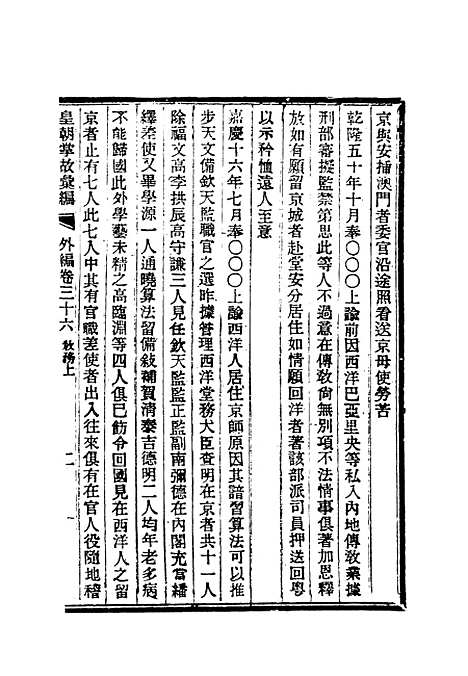 京與安插澳門者委官沿途照看送京毋使勞苦
乾隆五十年十月奉〇〇〇上諭前因西洋巴亞里央等私入內地傳敎業據
刑部審擬監禁第思此等人犯不過意在傳敎尙無別項不法情事俱著加恩釋
放如有願留京城者赴堂安分居住如情願回洋者著該部派司員押送回粵
以示矜恤遠人至意
嘉慶十六年七月奉〇〇〇上諭西洋人居住京師原因其諳習算法可以推
步天文備欽天監職官之選昨據管理西洋堂務大臣查明在京者共十一人
除福文高李拱辰高守謙三人見任欽天監監正監副南彌德在內閣充當繙
繹差使又畢學源一人通曉算法留備敍補賀清泰吉德明二人均年老多病
不能歸國此外學藝未精之高臨淵等四人俱已飭令回國見在西洋人之留
京者止有七人此七人中其有官職差使者出入往來俱有在官人役隨地稽
皇朝掌故彙編 外編卷三十六 敎務上 二